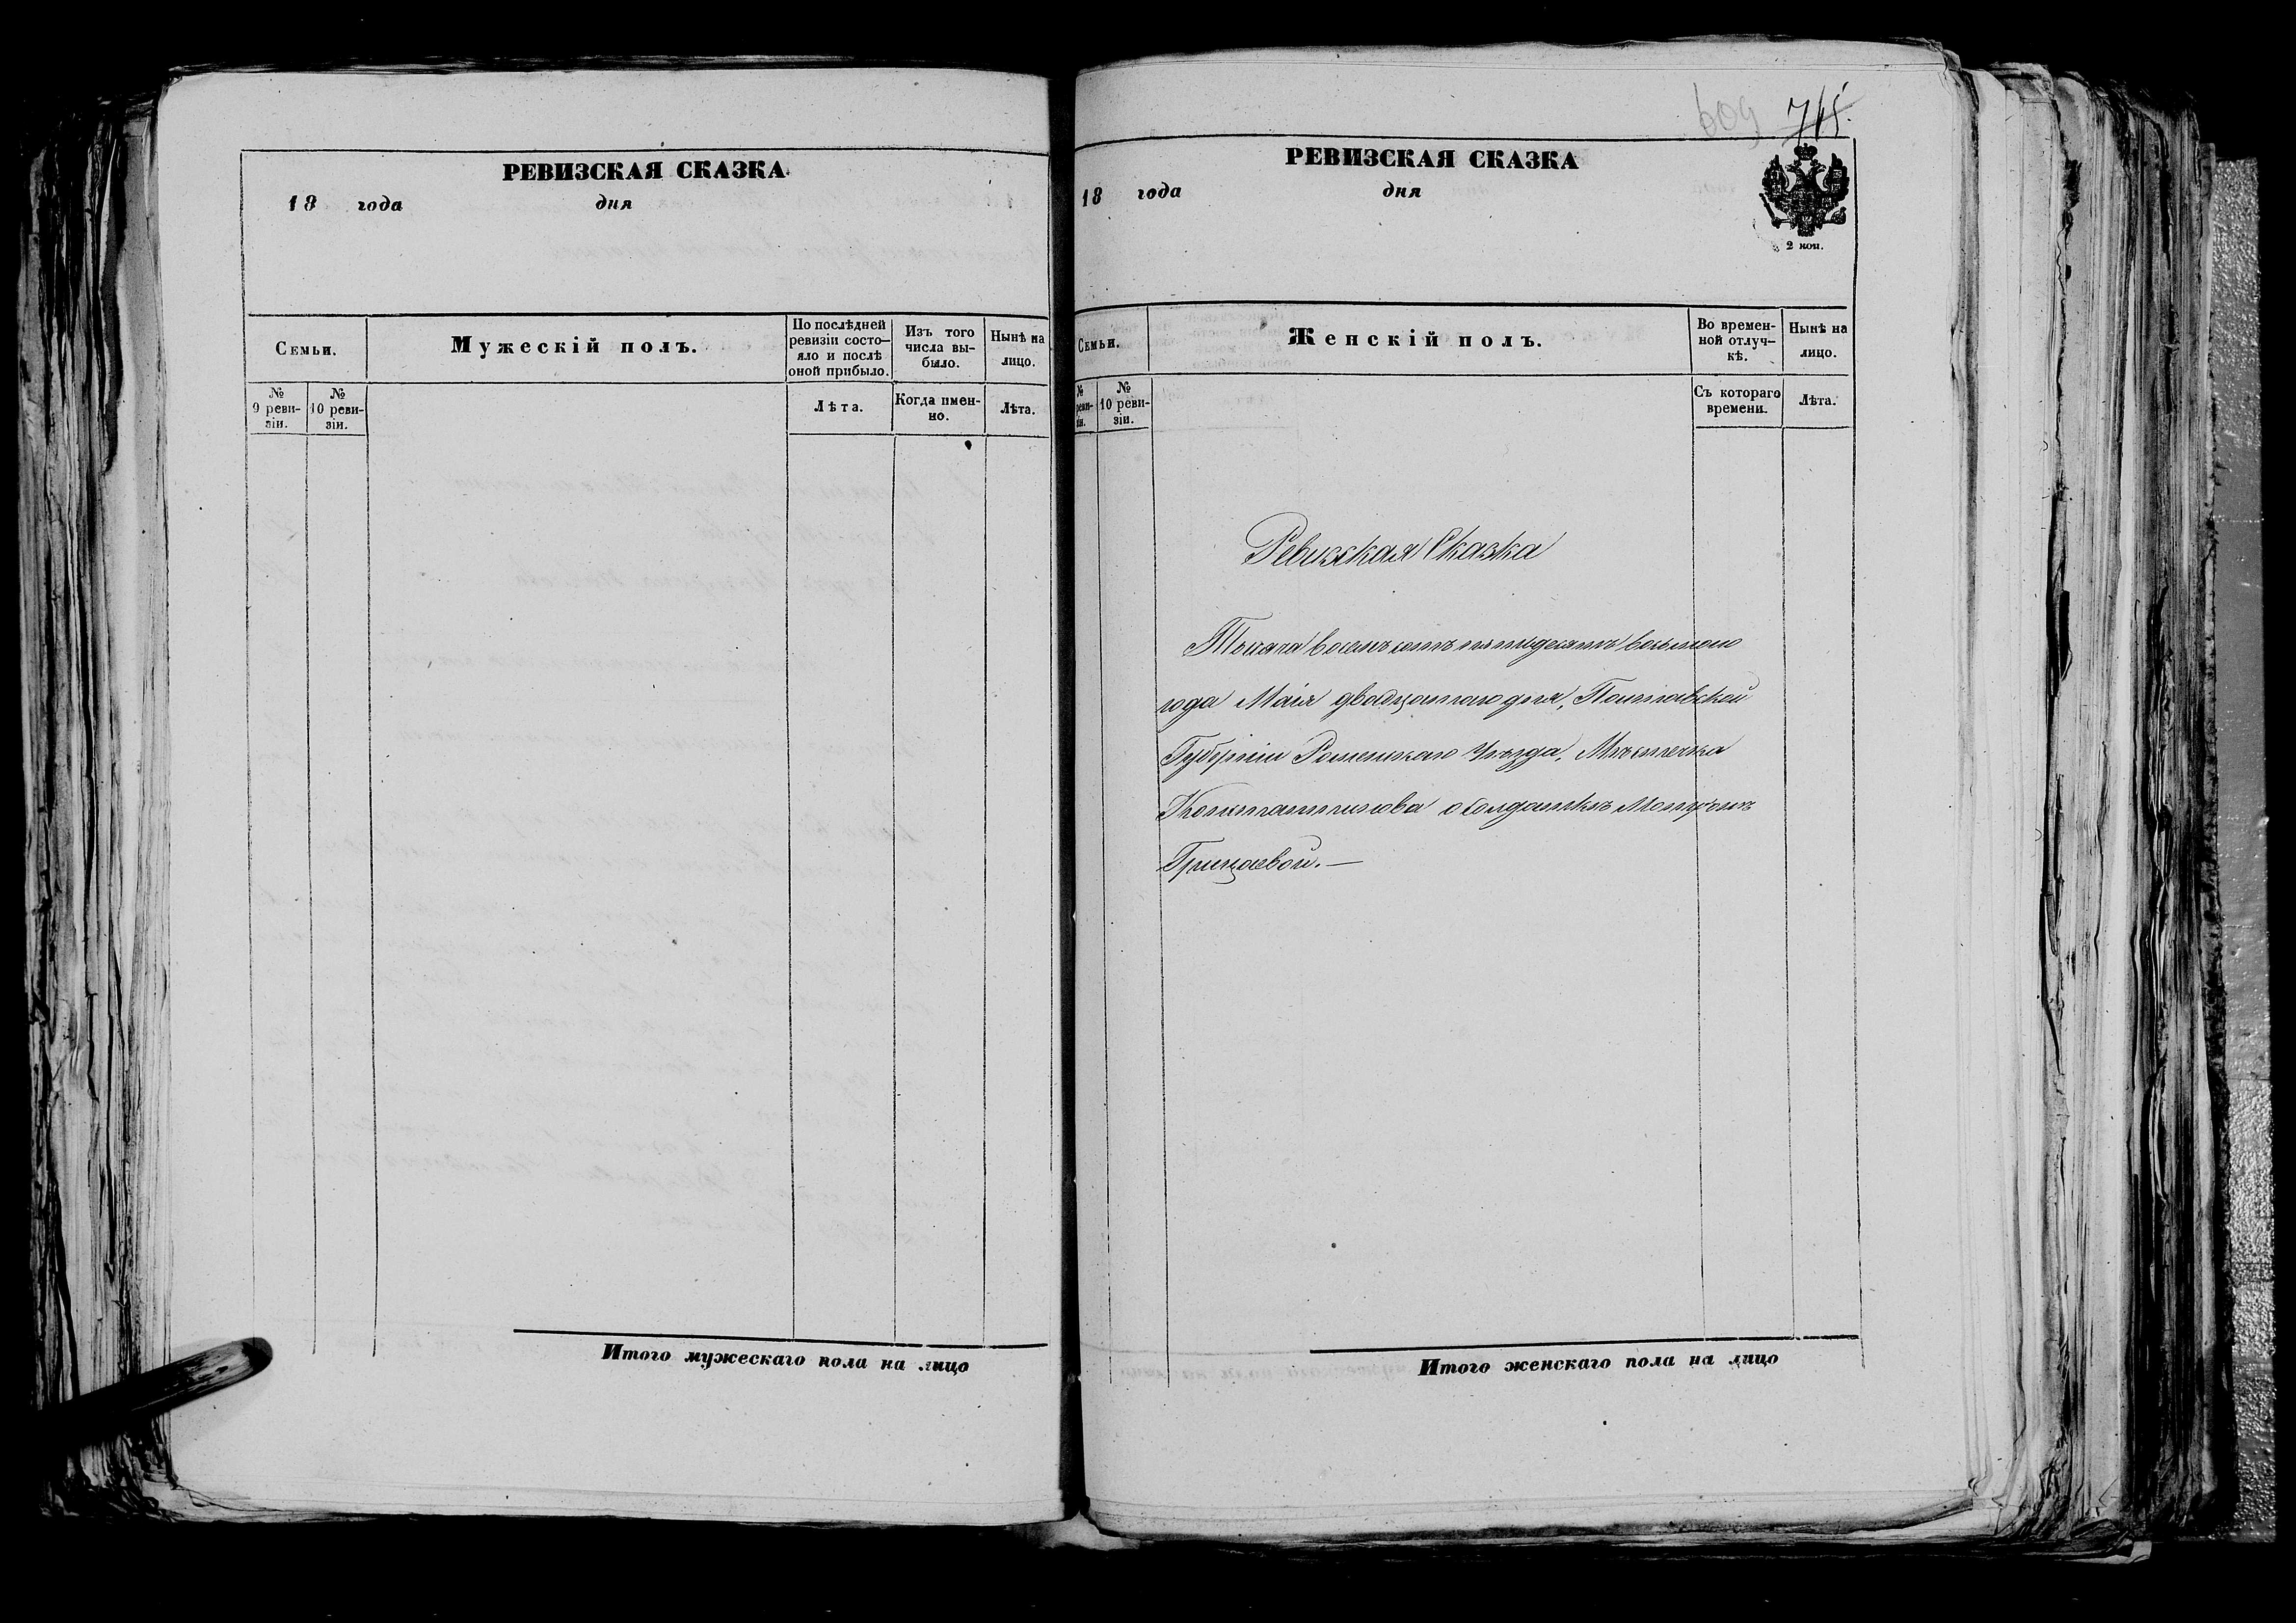 РЕВИЗСКАЯ СКАЗКА
18 года дня
Семьи.
Мужескій полъ.
По послѣдней ревизіи состо-
яло и послѣ
оной прибыло.
Изъ того
числа вы-
было.
Нынѣ на
лицо.
№
9 реви-
зіи.
№
10 реви-
зіи.
Лѣта.
Когда имен-
но.
Лѣта.
Итого мужескаго пола на лицо
609 715.
РЕВИЗСКАЯ СКАЗКА
18 года дня
2 коп.
Семьи.
Женскій полъ.
Во времен-
ной отлуч-
кѣ.
Нынѣ на
лицо.
№
реви-
зіи.
№
10 реви-
зіи.
Съ котораго
времени.
Лѣта.
Ревизская Сказка
Тысяча восемъ сотъ пятидесятъ восьмого
года Маія двадцатого дня, Полтавской
Губерніи Роменскаго Уѣзда, Мѣстечка
Константинова о Солдаткѣ
Грицаевой. —
Итого женскаго пола на лицо